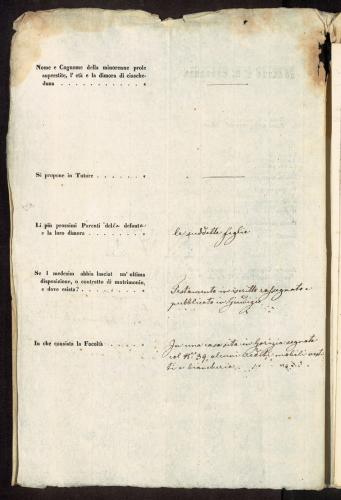 Nome e Cognome della minorenne prole
superstite, l' età e la dimora di ciasche-
duna
Si propone in Tutore
Li più prossimi Parenti della defunta
e la loro dimora
le suddette figlie
Se l medesim abbia lasciat un' ultima
disposizione, o contratto di matrimonio,
e dove esista?
Testamento in iscritto rassegnato e
pubblicato in Giudizio
In che consista la Facoltà
In una casa sita in Gorizia segnata
col N° 39, alcuni crediti mobili vesti-
ti e biancheria